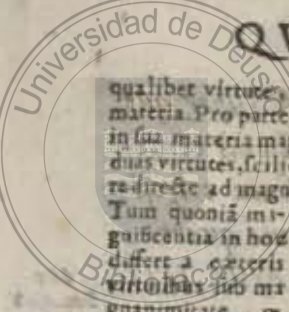 Universidad de Deusto
Biblioteca
Q V
qualibet virtute,
materia. Pro parte
in sua materia ma
duas virtutes, scili
re directe ad magn
Tum quoniã m
gnificentia in hoc
differt a cæteris
virtutibus sub ma
gnanimitate